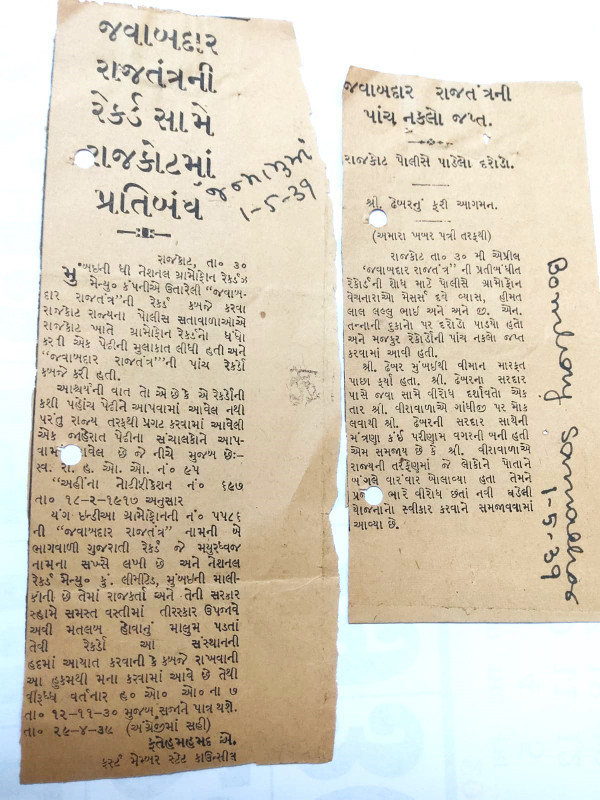 જવાબદાર
રાજતંત્રની
રેકર્ડ સામે
રાજકોટમાં
પ્રતિબંધ
જન્મભૂમિ
૧-૫-૩૯
રાજકોટ, તા૦ ૩૦
મુંબઇની ધી નેશનલ ગ્રામોફોન રેકર્ડઝ
મેન્યુ૦ કંપનીએ ઉતારેલી “જવાબ-
દાર રાજતંત્ર”ની રેકર્ડ કબજે કરવા
રાજકોટ રાજ્યના પોલીસ સતાવાળાઓએ
રાજકોટ ખાતે ગ્રામોફોન રેકર્ડનો ધંધો
કરતી એક પેટીની મુલાકાત લીધી હતી અને
“જવાબદાર રાજતંત્ર”ની પાંચ રેકર્ડો
કબજે કરી હતી.
આશ્ચર્યની વાત તો એ છે કે એ રેકર્ડોની
કશી પહોંચ પેટીને આપવામાં આવેલ નથી
પરંતુ રાજ્ય તરફથી પ્રગટ કરવામાં આવેલી
એક જાહેરાત પેટીના સંચાલકોને આપ-
વામાં આવેલ છે જે નીચે મુજબ છેઃ-
સ્વ. રા. હ. ઓ. ઓ. નં૦ ૯૫
“અહીંના નોટીફીકેશન નં૦ ૬૯૭
તા૦ ૧૮-૨-૧૯૧૭ અનુસાર
યંગ ઇન્ડીઆ ગ્રામોફોનની નં૦ ૫૫૮૬
ની “જવાબદાર રાજતંત્ર” નામની બે
ભાગવાળી ગુજરાતી રેકર્ડ જે મયુરધ્વજ
નામના સખ્સે લખી છે અને નેશનલ
રેકર્ડ મેન્યુ૦ કું. લીમીટેડ, મુંબઇની માલી-
કીની છે તેમાં રાજકર્તા અને તેની સરકાર
સ્હામે સમસ્ત વસ્તીમાં તીરસ્કાર ઉપજાવે
એવી મતલબ હોવાનું માલુમ પડતાં
તેવી રેકર્ડો આ સંસ્થાનની
હદમાં આયાત કરવાની કે કબજે રાખવાની
આ હુકમથી મના કરવામાં આવે છે તેથી
વીરૂધ્ધ વર્તનાર હ૦ ઓ૦ ઓ૦ ના ૭
તા૦ ૧૨-૧૧-૩૦ મુજબ સજાને પાત્ર થશે.
તા૦ ૨૯-૪-૩૯ (અંગ્રેજીમાં સહી)
ફતેહમહમદ એ.
ફર્સ્ટ મેમ્બર સ્ટેટ કાઉન્સીલ
જવાબદાર રાજતંત્રની
પાંચ નકલો જપ્ત.
રાજકોટ પોલીસે પાડેલો દરોડો.
શ્રી. ઢેબરનું ફરી આગમન.
(અમારા ખબર પત્રી તરફથી)
રાજકોટ તા૦ ૩૦ મી એપ્રીલ
‘જવાબદાર રાજતંત્ર’ ની પ્રતીબંધીત
રેકોર્ડની શોધ માટે પોલીસે ગ્રામોફોન
વેચનારાઓ મેસર્સ દવે વ્યાસ, હીમત
લાલ લલ્લુ ભાઇ અને અને જી. એન.
તન્નાની દુકાનો પર દરોડો પાડયો હતો
અને મજકુર રેકોર્ડની પાંચ નકલો જપ્ત
કરવામાં આવી હતી.
શ્રી. ઢેબર મુંબઇથી વીમાન મારફત
પાછા ફર્યા હતા. શ્રી. ઢેબરના સરદાર
પાસે જવા સામે વીરોધ દર્શાવતો એક
તાર શ્રી. વીરાવાળાએ ગાંધીજી પર મોક
લવાથી શ્રી. ઢેબરની સરદાર સાથેની
મંત્રણા કંઇ પરીણામ વગરની બની હતી
એમ સમજાય છે કે શ્રી. વીરાવાળાએ
રાજ્યની તરફેણમાં જે લોકોને પોતાને
બંગલે વારંવાર બોલાવ્યા હતા તેમને
પ્રજાના ભારે વીરોધ છતાં નવી ઘડેલી
યોજનાનો સ્વીકાર કરવાને સમજાવવામાં
આવ્યા છે.
Bombay Samachar
1-5-39